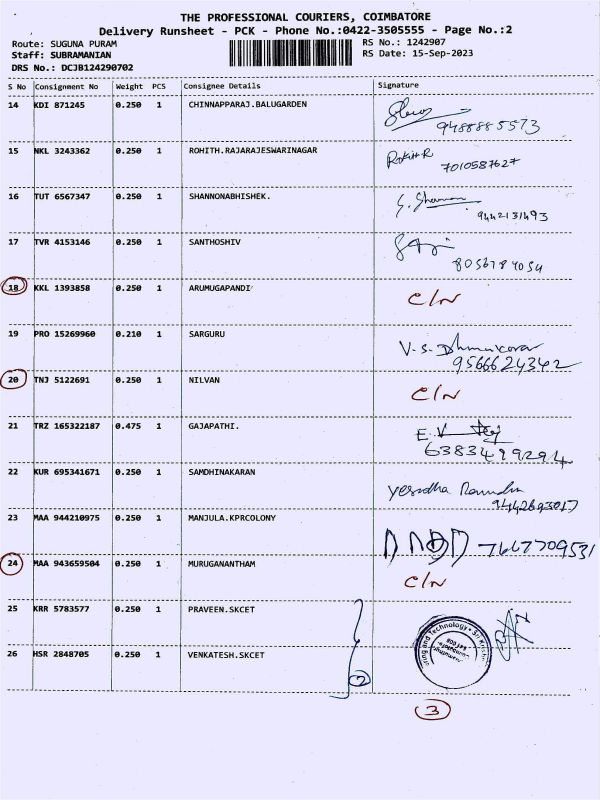 THE PROFESSIONAL COURIERS, COIMBATORE
Delivery Runsheet - PCK - Phone No.:0422-3505555 - Page No.:2
Route: SUGUNA PURAM RS No.: 1242907
Staff: SUBRAMANIAN RS Date: 15-Sep-2023
DRS No.: DCJB124290702
S No Consignment No Weight PCS Consignee Details Signature
14 KDI 871245 0.250 1 CHINNAPPARAJ.BALUGARDEN
9488885573
15 NKL 3243362 0.250 1 ROHITH.RAJARAJESWARINAGAR Rohith R
7010587627
16 TUT 6567347 0.250 1 SHANNONABHISHEK.
9442131493
17 TVR 4153146 0.250 1 SANTHOSHIV
8056784054
18 KKL 1393858 0.250 1 ARUMUGAPANDI C/N
19 PRO 15269960 0.210 1 SARGURU V.S.
9566624342
20 TNJ 5122691 0.250 1 NILVAN C/N
21 TRZ 165322187 0.475 1 GAJAPATHI. E.V
6383499294
22 KUR 695341671 0.250 1 SAMDHINAKARAN
9442693017
23 MAA 944210975 0.250 1 MANJULA.KPRCOLONY
7667709531
24 MAA 943659504 0.250 1 MURUGANANTHAM C/N
25 KRR 5783577 0.250 1 PRAVEEN.SKCET
26 HSR 2848705 0.250 1 VENKATESH.SKCET
2
3